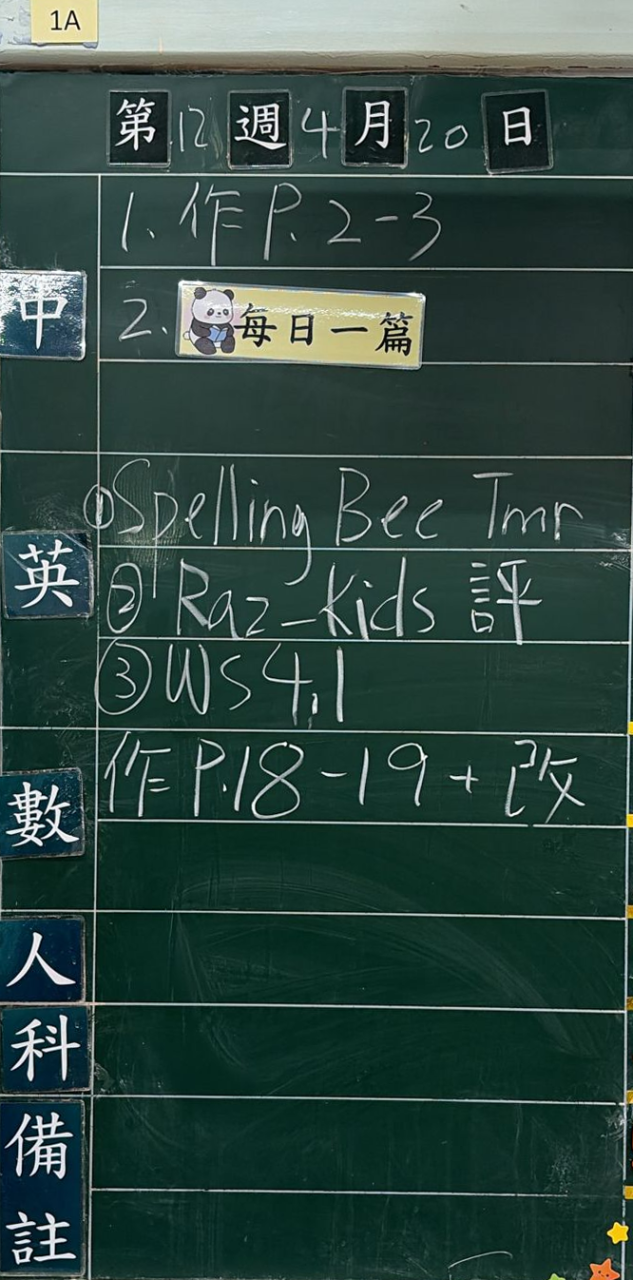 1A
第12週4月20日
中
1. 作P. 2-3
2. 每日一篇
英
①Spelling Bee Tmr
② Raz-Kids 評
③WS 4.1
數
作P.18-19 + 改
人
科
備註